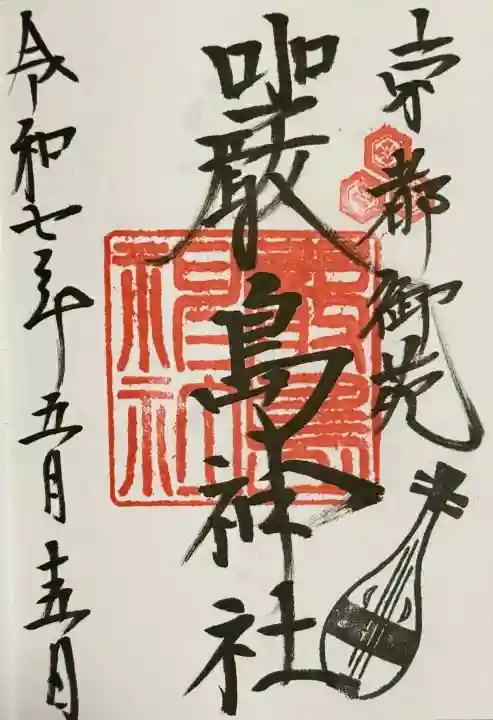 京都御苑
嚴島神社
令和七年五月十五日